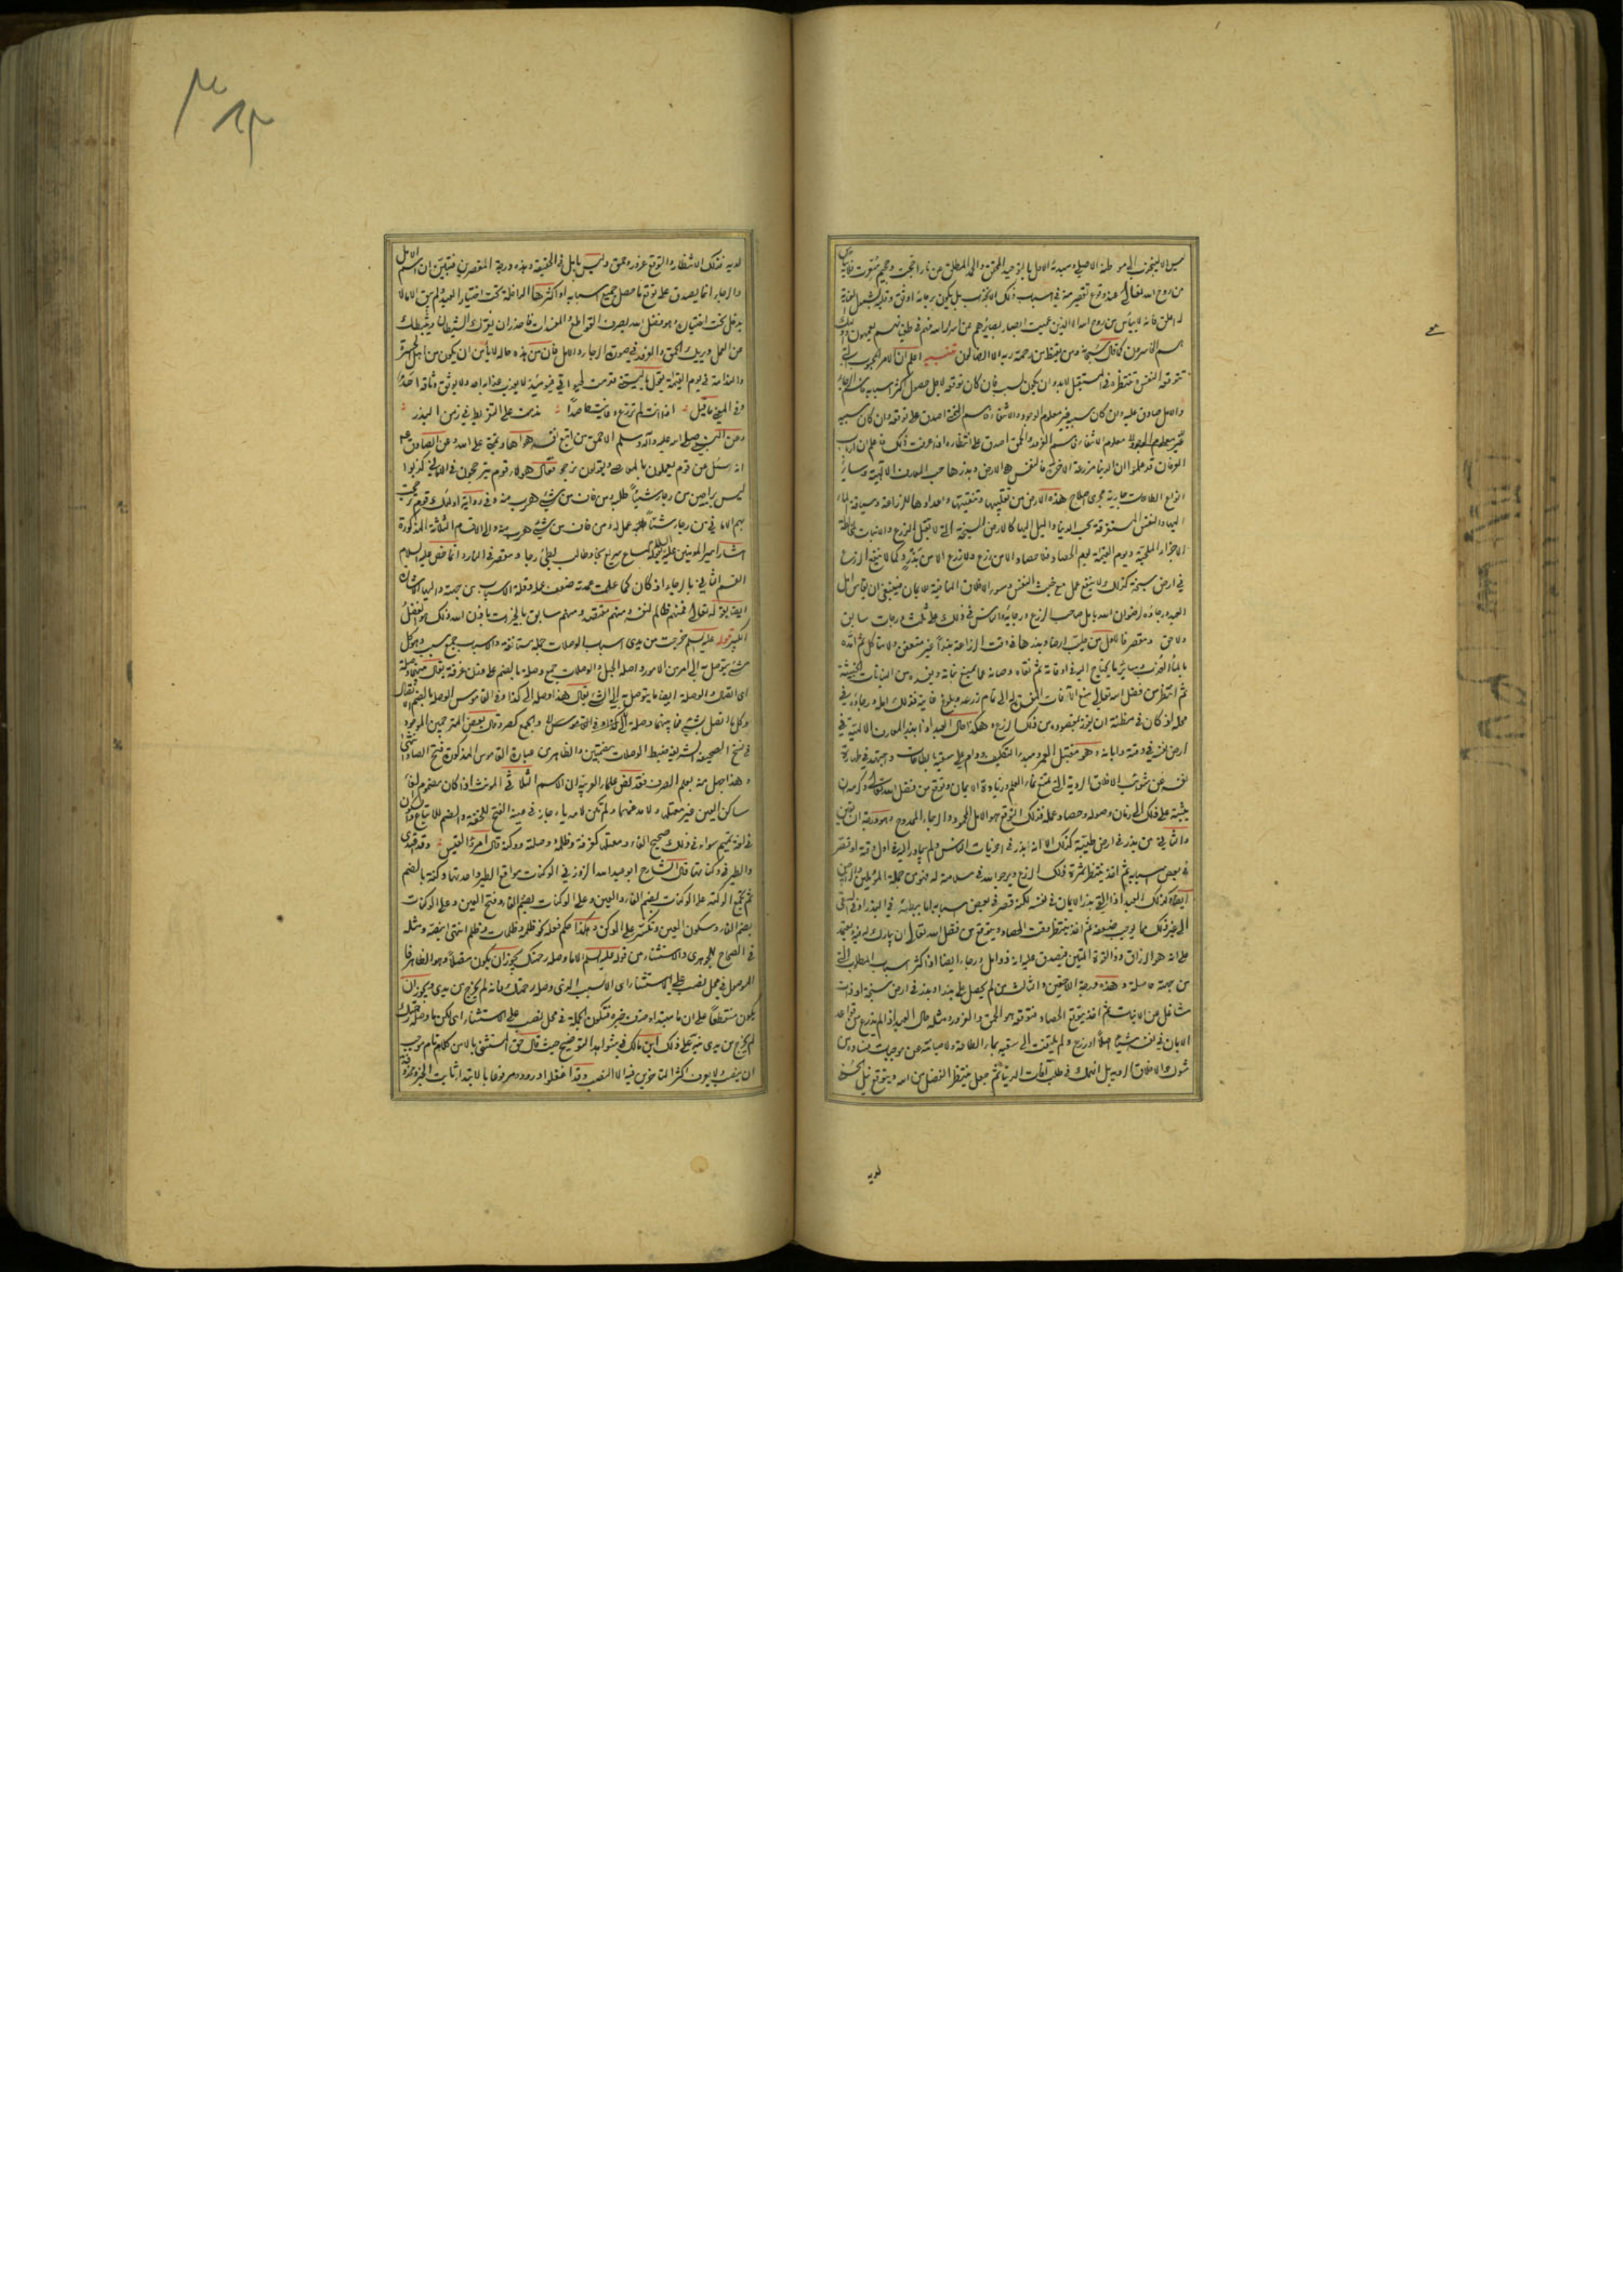 من روح الله تعالى عند وقوع تقصير منه في اسباب ذلك الانجذاب بل يكون رجائه اوثق
فانه لا ييأس من روح الله الا الذين عميت ابصار بصائرهم عن اسرار الله فهم في طغيانهم يعمهون
هم الخاسرون كما قال سبحانه ومن يقنط من رحمة ربه الا الضالون تنبيه اعلم ان الامر المحبوب الذي
تتوقعه النفس وتنتظره في المستقبل لا بد وان يكون لسبب فان كان توقعه لاجل حصول اكثر اسبابه فاسم الرجاء
والامل صادق عليه وان كان سببه غير معلوم الوجود والانتفاء فاسم التمني اصدق على توقعه وان كان سببه
غير معلوم الوجود معلوم الانتفاء فاسم الغرور والحمق اصدق على انتظاره اذا عرفت ذلك فاعلم ان ارباب
العرفان قد علموا ان الدنيا مزرعة الاخرة فالنفس هي الارض وبذرها حب المعارف الالهية وسائر
انواع الطاعات جارية مجرى اصلاح هذه الارض من تقليبها وتنقيتها واعدادها للزراعة وسياقة الماء
اليها والنفس المستغرقة بحب الدنيا والميل اليها كالارض السبخة التي لا تقبل الزرع والانبات لمخالطة
الاجزاء الملحية ويوم القيمة يوم الحصاد فلا حصاد الا من زرع ولا زرع الا من بذر وكما لا ينفع الزرع
في ارض سبخة كذلك لا ينفع عمل مع خبث النفس وسوء الاخلاق المنافية للايمان فينبغي ان يقاس امل
العبد ورجاؤه لرضوان الله بامل صاحب الزرع ورجائه والناس في ذلك على ثلث درجات سابق
ولاحق ومقصر فالاول من طلب ارضا وبذرها في وقت الزراعة بذرا غير متعفن ولا متاكل ثم امده
بالماء العذب وسائر ما يحتاج اليه في اوقاته ثم نقاه وصانه عما يمنع نباته ويفسده من النباتات الخبيثة
ثم انتظر من فضل الله تعالى منع الآفات المفسدة له الى تمام زرعه وبلوغ غايته فذلك امله ورجاؤه في
محله اذ كان في مظنة ان يفوز بمقصوده من ذلك الزرع وهكذا حال العبد اذا بذر المعارف الالهية في
ارض نفسه في وقته وابانه وهو مقتبل العمر ومبدء التكليف ودام على سقيه بالطاعات واجتهد في طهارة
نفسه عن شوائب الاخلاق الردية التي تمنع نماء العلم وزيادة الايمان وتوقع من فضل الله تعالى وكرمه ان
يثبته على ذلك الى زمان وصوله وحصاد عمله فذلك التوقع هو الامل المحمود والرجاء الممدوح وهو درجة السابقين
والثاني من بذر في ارض طيبة كذلك الا انه بذر في اخريات الناس ولم يبادر اليه في اول وقته او قصر
في بعض اسبابه ثم اخذ ينتظر ثمرة ذلك الزرع ويرجو الله في سلامته له فهو من جملة المؤملين والراجين
ايضا وكذلك العبد اذا القى بذر الايمان في نفسه لكنه قصر في بعض اسبابه اما ببطائه في البذر او في السقي
الى غير ذلك مما يوجب ضعفه ثم اخذ ينتظر وقت الحصاد ويتوقع من فضل الله تعالى ان يبارك له فيه ويعتمد
على انه هو الرزاق ذو القوة المتين فيصدق عليه انه ذو امل ورجاء ايضا اذ اكثر اسباب المطلوب التي
من جهته حاصلة وهذه درجة اللاحقين والثالث من لم يحصل على بذر او بذر في ارض سبخة او ذات
شاغل عن الانبات ثم اخذ يتوقع الحصاد فتوقعه هو الحمق والغرور ومثله حال العبد اذا لم يزرع من قواعد
الايمان في نفسه شيئا اصلا او زرع ولم يلتفت الى سقيه بماء الطاعة ولا صيانته عن موجبات فساده من
شوك الاخلاق الردية بل انهمك في طلب آفات الدنيا ثم جعل ينتظر الفضل من الله ويتوقع نيل الحسنى
لديه
لديه فذلك الانتظار والتوقع غرور وحمق وليس بامل في الحقيقة وهذه درجة المقصرين فتبين ان اسم الامل
والرجاء انما يصدق على توقع ما حصل جميع اسبابه او اكثرها الداخلة تحت اختيار العبد ولم يبق الا ما لا
يدخل تحت اختياره وهو فضل الله بصرف القواطع والمفسدات فاحذر ان يغرك الشيطان ويثبطك
عن العمل ويريك الحمق والغرور في صورة الرجاء والامل فان من هذه حاله لا يأمن ان يكون من اهل الحسرة
والندامة في يوم القيمة يقول يا ليتني قدمت لحيوتي فيومئذ لا يعذب عذابه احد ولا يوثق وثاقه احد
وفي المعنى ما قيل اذا انت لم تزرع وعاينت حاصدا ندمت على التفريط في زمن البذر
وعن النبي صلى الله عليه وآله وسلم الاحمق من اتبع نفسه هواها وتمنى على الله وعن الصادق ع
انه سئل عن قوم يعملون بالمعاصي ويقولون نرجو فقال هؤلاء قوم يترجحون في الاماني كذبوا
ليس براجين من رجا شيئا طلبه ومن خاف من شيء هرب منه وفي رواية اولئك قوم ترجحت
بهم الاماني من رجا شيئا عمل له ومن خاف من شيء هرب منه والى الاقسام الثلاثة المذكورة
اشار امير المؤمنين عليه السلام بقوله ساع سريع نجا وطالب بطيء رجا ومقصر في النار وانما خص عليه السلام
القسم الثاني بالرجاء اذ كان كما علمت عمدته ضعف عمله وقلة الاسباب من جهته واليها الاشارة
ايضا بقوله تعالى فمنهم ظالم لنفسه ومنهم مقتصد ومنهم سابق بالخيرات باذن الله ذلك هو الفضل
الكبير قوله عليه السلم خرجت من يدي اسباب الوصلات جملة مستانفة والاسباب جمع سبب وهو كل
شيء يتوصل به الى امر من الامور واصله الحبل والوصلات جمع وصلة بالضم على وزان غرفة يقال بينهما وصلة
اي اتصال والوصلة ايضا ما يتوصل به الى الشيء يقال هذا وصلة الى كذا وفي القاموس الوصلة بالضم الاتصال
وكل ما اتصل بشيء فما بينهما وصلة والجمع كصرد وقال بعض المترجمين الموجود
في نسخ الصحيفة الشريفة ضبط الوصلات بضمتين والظاهر من عبارة القاموس المذكورة فتح الصاد انتهى
وهذا جهل منه بعلم الصرف فقد نص علماء العربية ان الاسم الثلاثي المونث اذا كان مضموم الفاء
ساكن العين غير معتلها ولا مدغمها ولم تكن لامه ياء جاز في عينه الفتح للخفة والضم للاتباع والسكون
في لغة تميم سواء في ذلك صحيح الفاء ومعتلها كغرفة وظلمة وصلة ووكنة قال امرؤ القيس وقد اغتدي
والطير في وكناتها قال الشارح ابو عبد الله الزوزني الوكنات مواقع الطير واحدتها وكنة بالضم
ثم تجمع الوكنة على الوكنات بضم الفاء والعين وعلى الوكنات بضم الفاء وفتح العين وعلى الوكنات
بضم الفاء وسكون العين وتكسر على الوكن وهكذا حكم فعلة نحو ظلمة وظلمات وظلم انتهى بنصه ومثله
في الصحاح للجوهري والاستثناء من قوله عليه السلم الا ما وصله رحمتك يجوز ان يكون متصلا وهو الظاهر فما
الموصول في محل نصب على الاستثناء اي الا السبب الذي وصله رحمتك فانه لم يخرج من يدي ويجوز ان
يكون منقطعا على ان ما مبتدأ حذف خبره فتكون الجملة في محل نصب على الاستثناء اي لكن ما وصله رحمتك
لم يخرج من يدي نبه على ذلك ابن مالك في شواهد التوضيح حيث قال حق المستثنى بالا من كلام تام موجب
ان ينصب ولا يعرف اكثر المتاخرين فيه الا النصب وقد اغفلوا وروده مرفوعا بالابتداء ثابت الخبر ومحذوفه